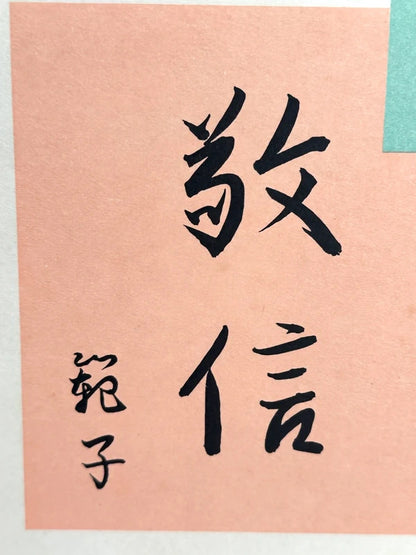 敬信
範子